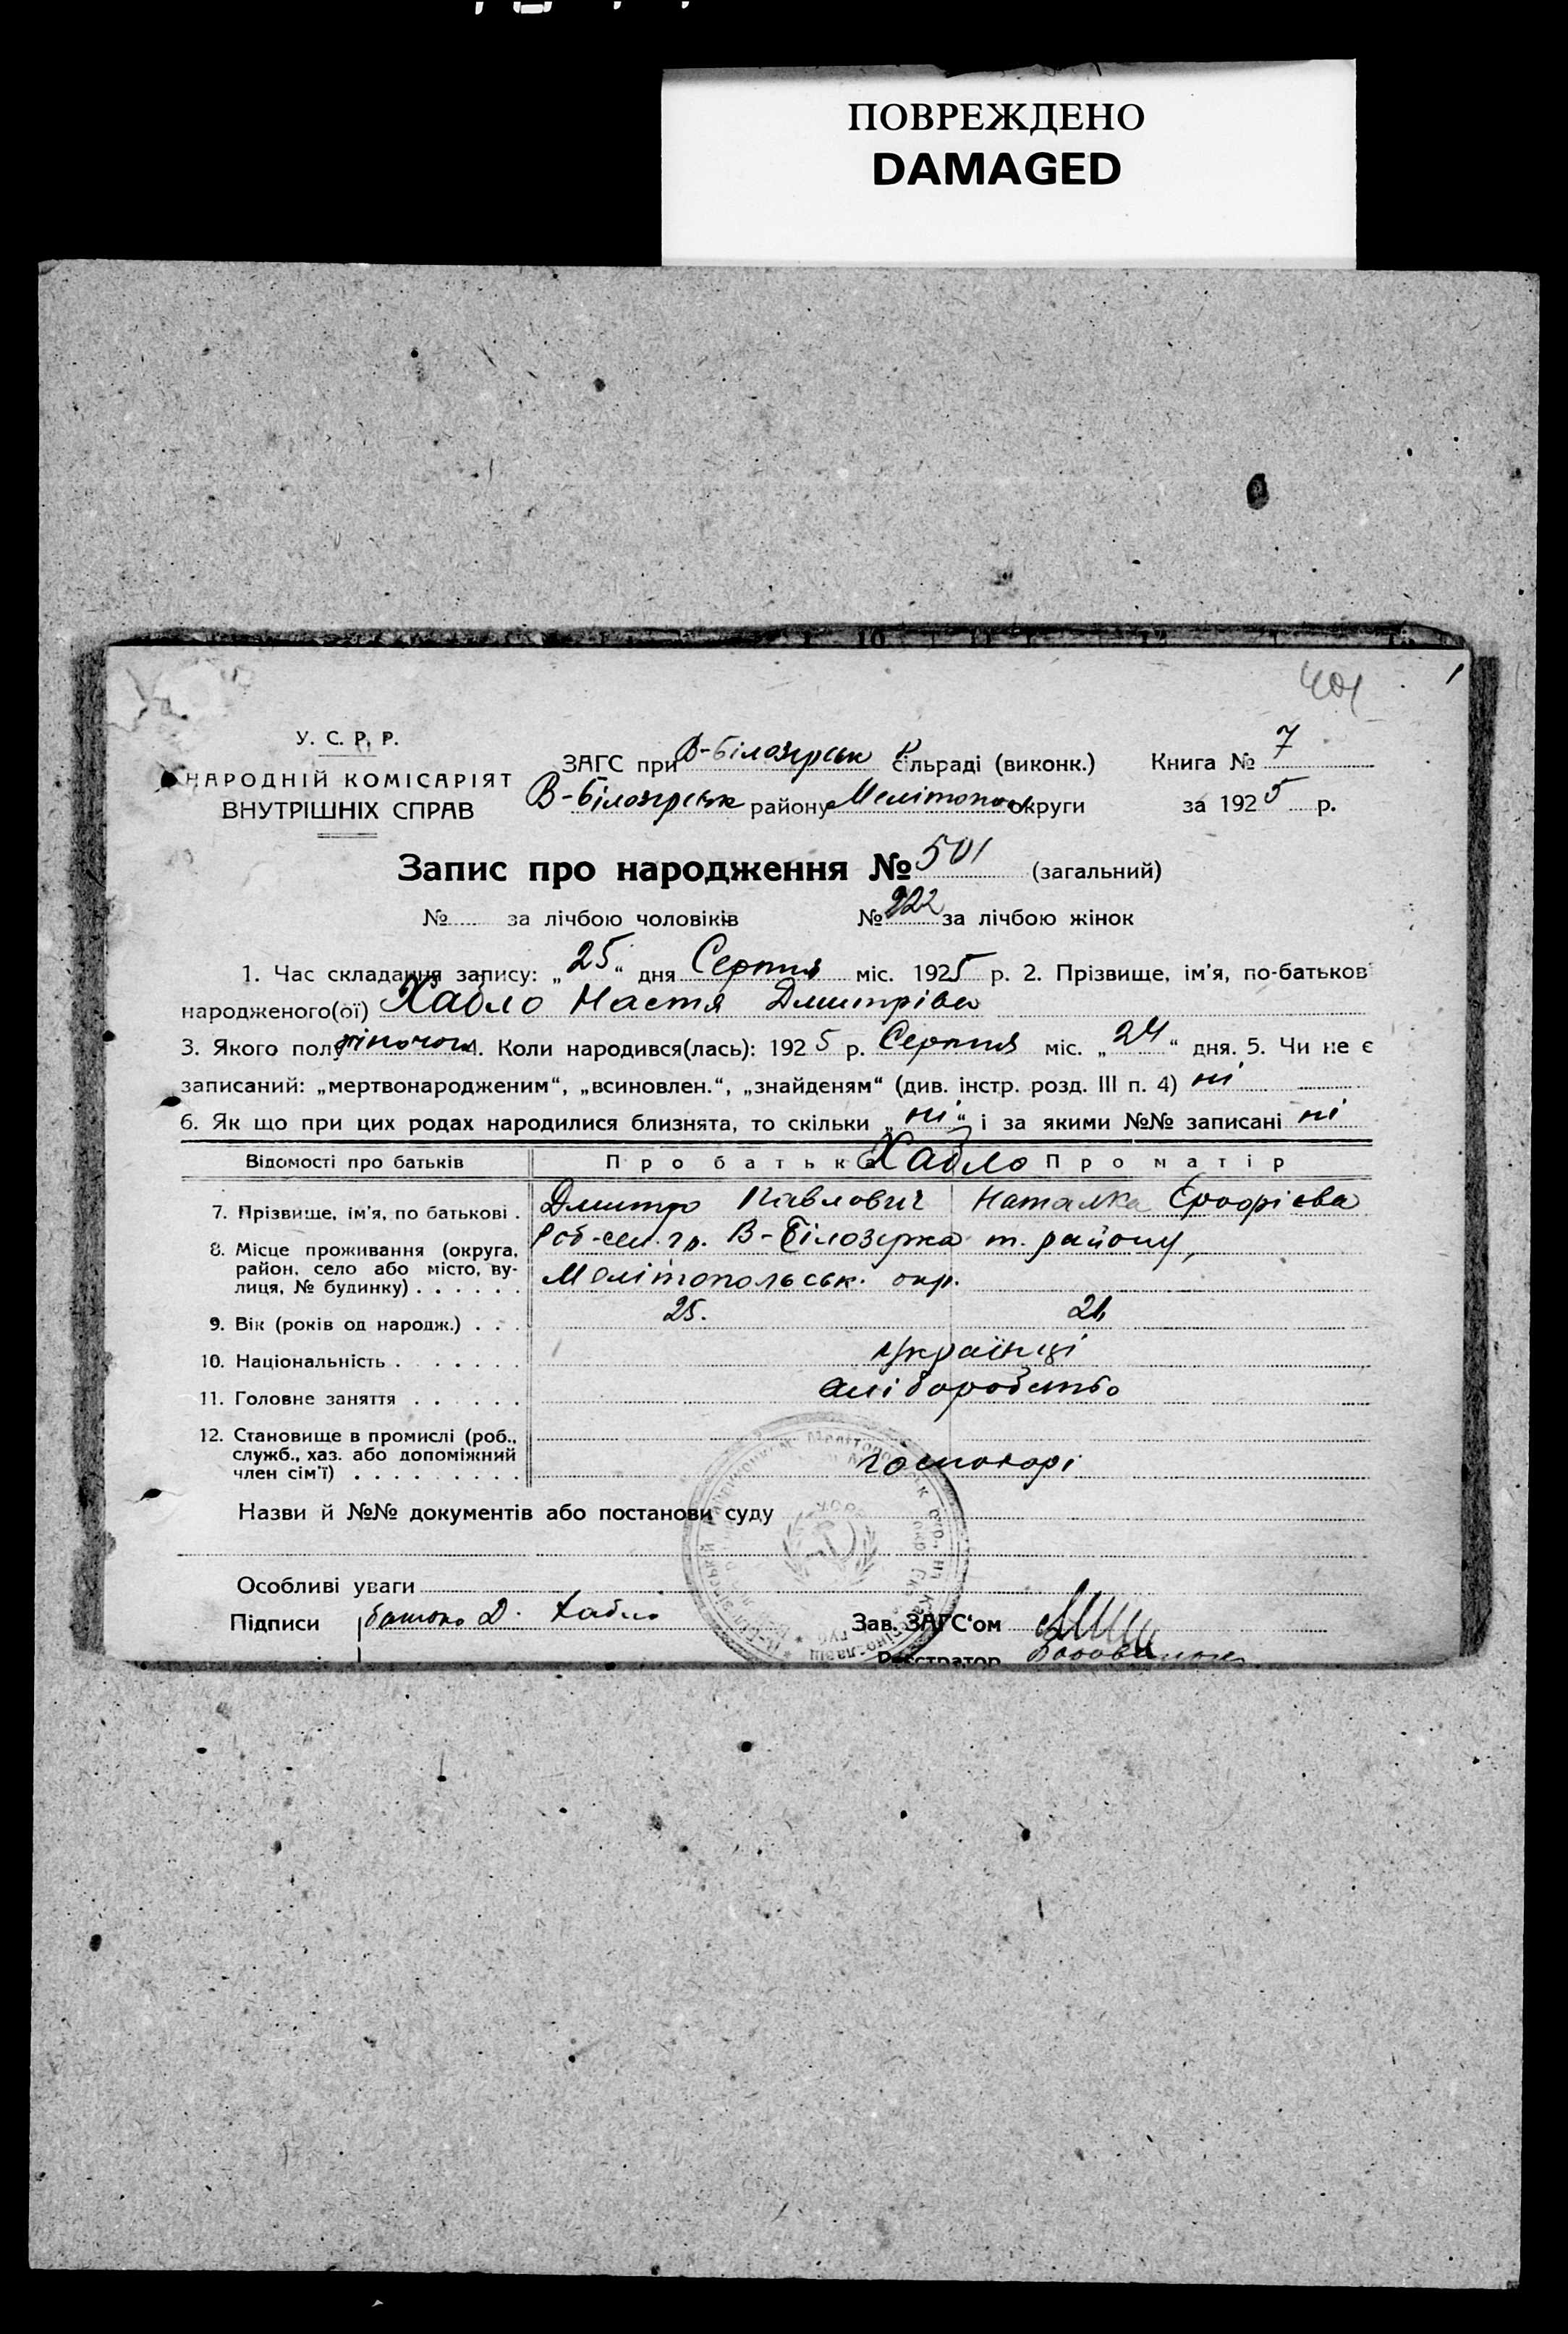 ПОВРЕЖДЕНО
DAMAGED
401
У. С. Р. Р.
НАРОДНІЙ КОМІСАРІЯТ
ВНУТРІШНІХ СПРАВ
ЗАГС при В-Білозерськ сільраді (виконк.) Книга № 7
В-Білозерськ району Мелітопольськ округи за 1925 р.
Запис про народження № 501 (загальний)
№ за лічбою чоловіків № 222 за лічбою жінок
1. Час складання запису: „25“ дня Серпня міс. 1925 р. 2. Прізвище, ім'я, по-батьков
народженого(ої) Хабло Настя Дмитрівна
3. Якого полу жіночого 4. Коли народився(лась): 1925 р. Серпня міс. „24“ дня. 5. Чи не є
записаний: „мертвонародженим“, „всиновлен.“, „знайденям“ (див. інстр. розд. III п. 4) ні
6. Як що при цих родах народилися близнята, то скільки „ні“ і за якими №№ записані ні
Відомості про батьків Про батька Хабло Про матір
7. Прізвище, ім'я, по батькові . Дмитро Павлович Наталка
8. Місце проживання (округа, район, село або місто, вулиця, № будинку) . . . . . . В-Білозерка т. району,
Мелітопольськ. окр.
9. Вік (років од народж.) . . . 25. 21
10. Національність . . . . . . . українці
11. Головне заняття . . . . . . хліборобство
12. Становище в промислі (роб., служб., хаз. або допоміжний член сім'ї) . . . . . . . . . господарі
Назви й №№ документів або постанови суду
Особливі уваги
Підписи батько Д. Хабло Зав. ЗАГС'ом
Реєстратор